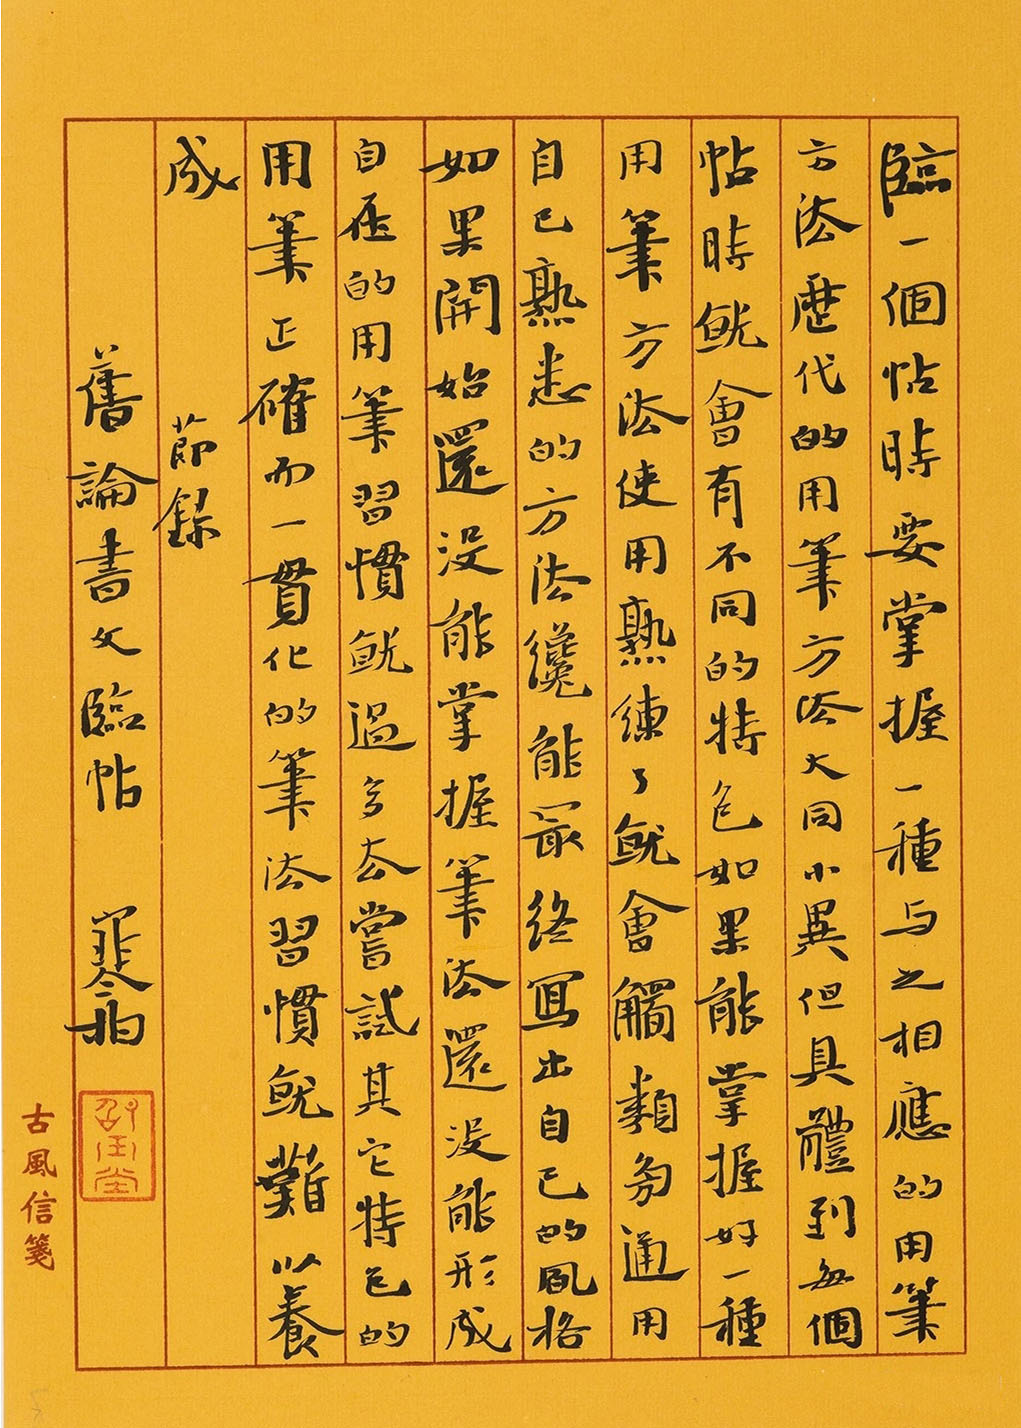 臨一個帖時要掌握一種与之相應的用筆
方法歷代的用筆方法大同小異但具體到每個
帖時就會有不同的特色如果能掌握好一種
用筆方法使用熟練了就會觸類旁通用
自己熟悉的方法纔能最終寫出自己的風格
如果開始還没能掌握筆法還没能形成
自在的用筆習慣就過多去嘗試其它特色的
用筆正確而一貫化的筆法習慣就難以養
成 節錄
舊論書文臨帖 寒
古風信箋